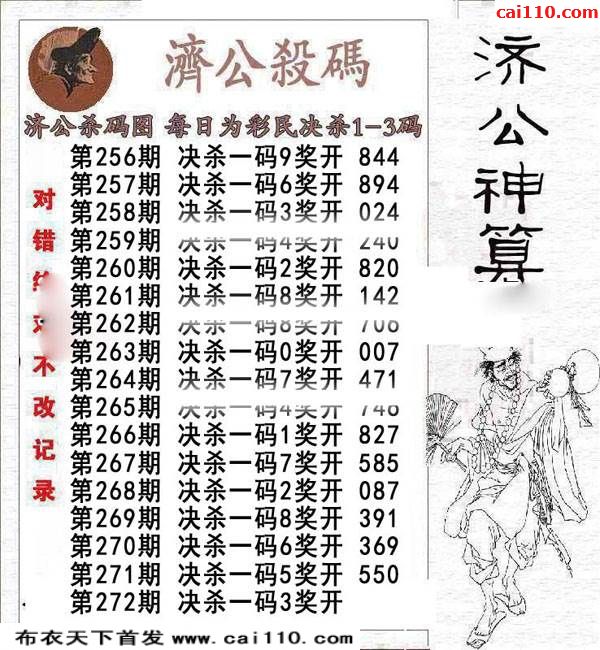 cai110.com
濟公殺碼
济公杀码图 每日为彩民决杀1-3码
第256期 决杀一码9奖开 844
第257期 决杀一码6奖开 894
第258期 决杀一码3奖开 024
第259期 决杀一码4奖开 240
第260期 决杀一码2奖开 820
第261期 决杀一码8奖开 142
第262期 决杀一码8奖开 706
第263期 决杀一码0奖开 007
第264期 决杀一码7奖开 471
第265期 决杀一码4奖开 746
第266期 决杀一码1奖开 827
第267期 决杀一码7奖开 585
第268期 决杀一码2奖开 087
第269期 决杀一码8奖开 391
第270期 决杀一码6奖开 369
第271期 决杀一码5奖开 550
第272期 决杀一码3奖开
对错不改记录
济公神算
布衣天下首发 www.cai110.com